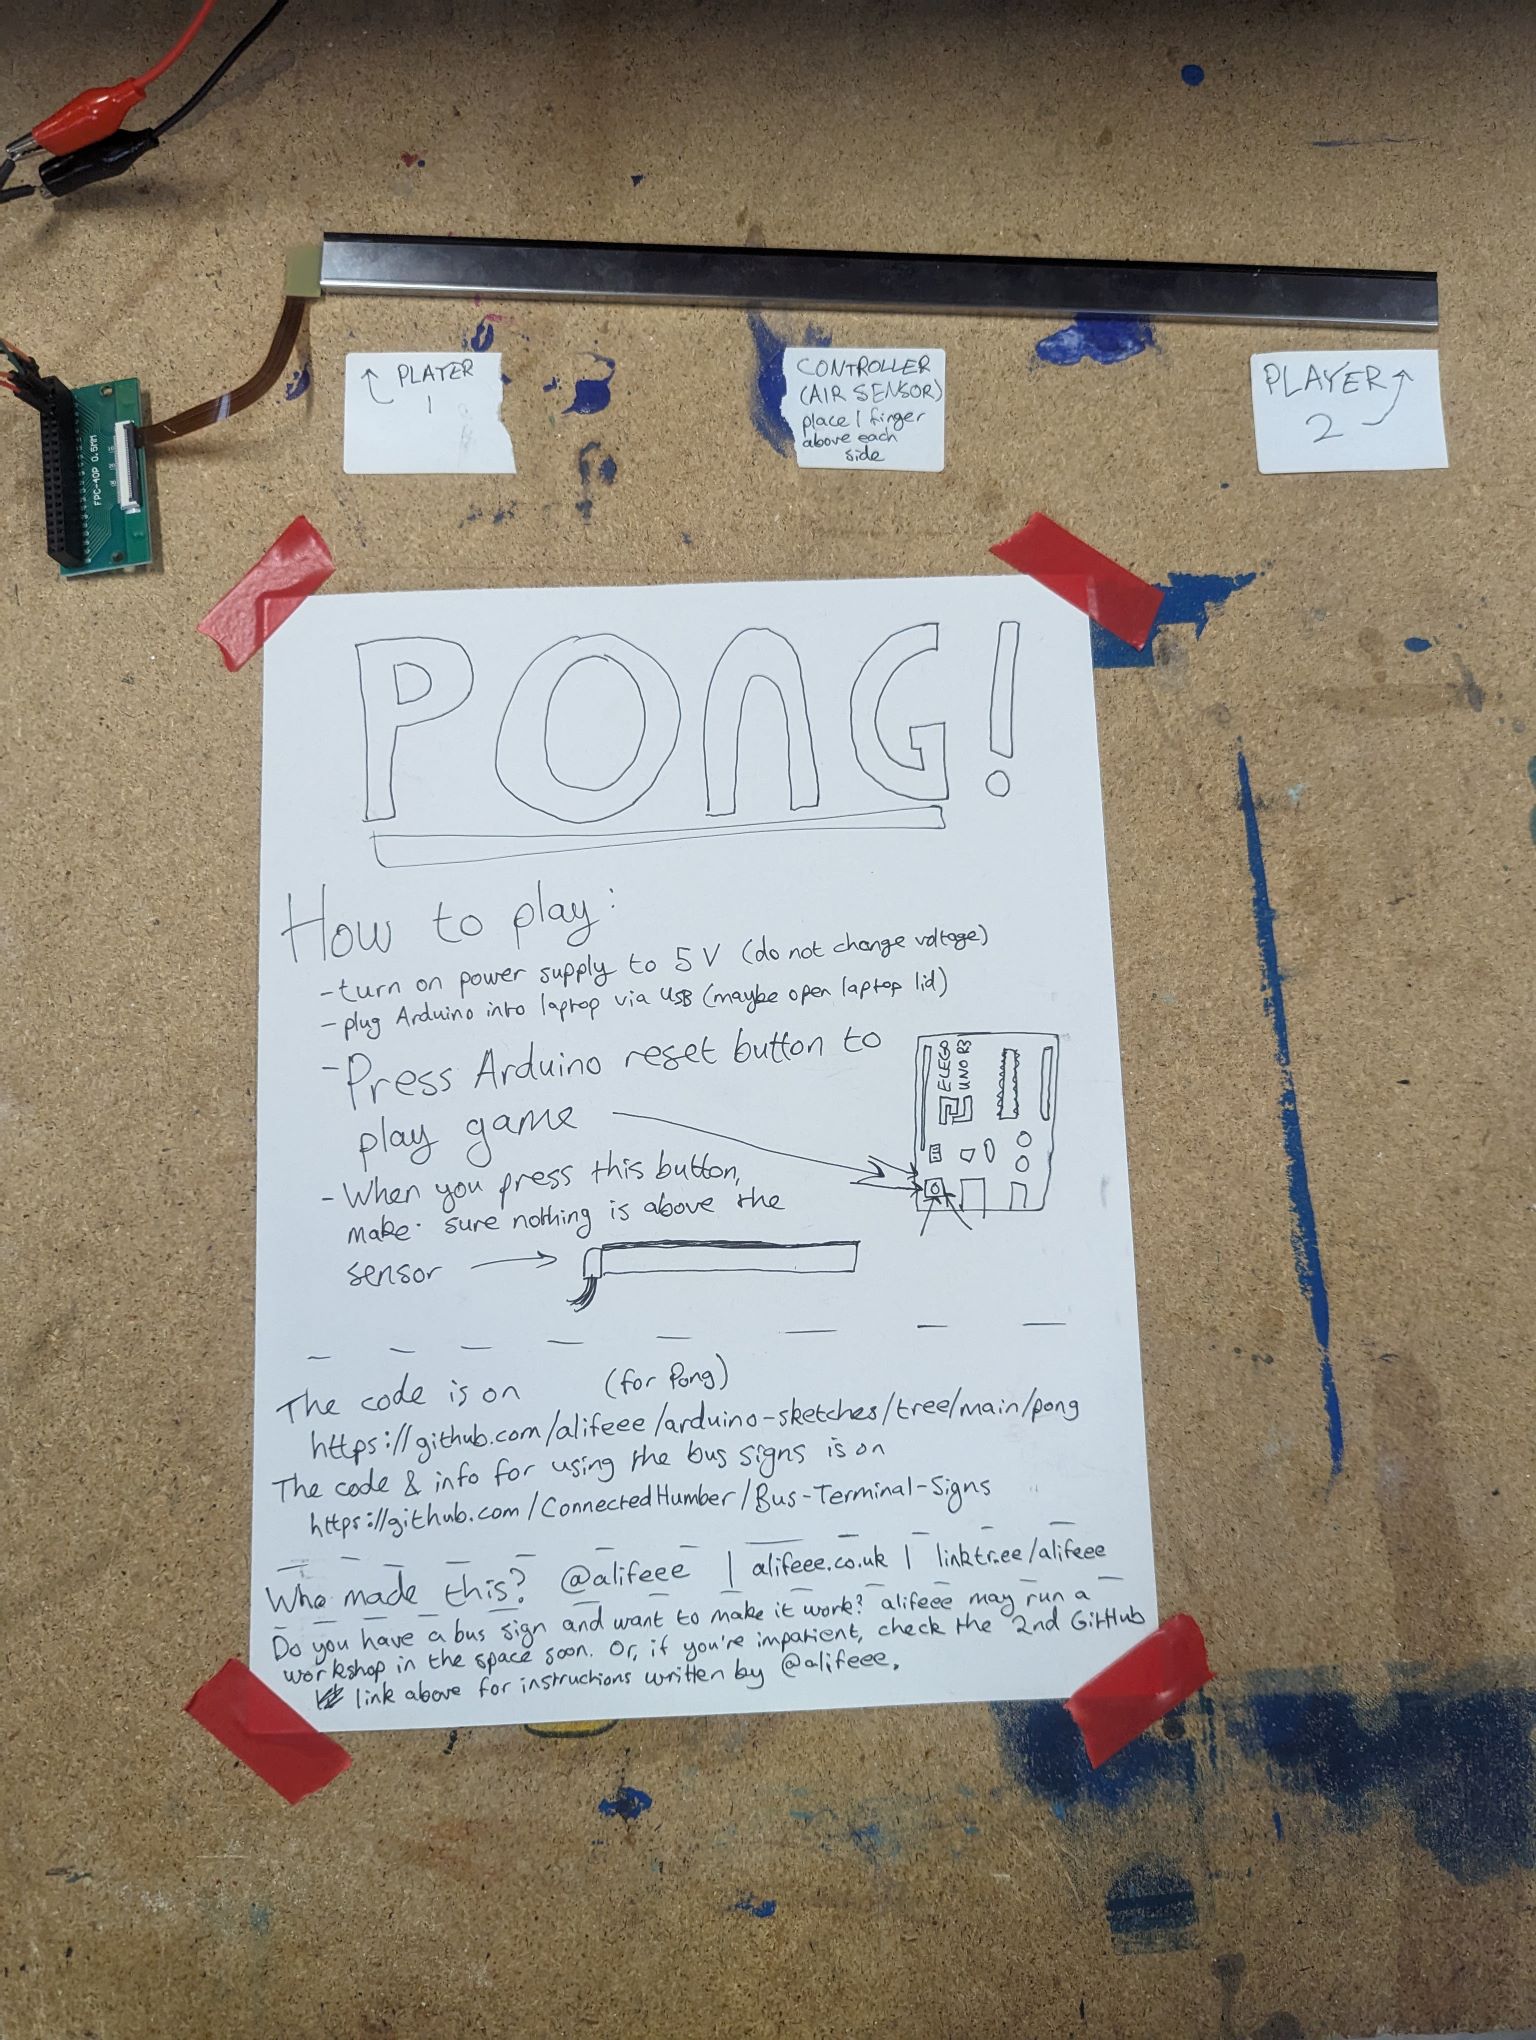 PLAYER
1
CONTROLLER
(AIR SENSOR)
place 1 finger
above each
side
PLAYER
2
FPC-40P 0.5mm
PONG!
How to play:
- turn on power supply to 5V (do not change voltage)
- plug Arduino into laptop via USB (maybe open laptop lid)
- Press Arduino reset button to
play game
ELEGO
UNO R3
- When you press this button,
make sure nothing is above the
sensor
The code is on (for Pong)
https://github.com/alifeee/arduino-sketches/tree/main/pong
The code & info for using the bus signs is on
https://github.com/ConnectedHumber/Bus-Terminal-Signs
Who made this? @alifeee | alifeee.co.uk | linktr.ee/alifeee
Do you have a bus sign and want to make it work? alifeee may run a
workshop in the space soon. Or, if you're impatient, check the 2nd GitHub
link above for instructions written by @alifeee.